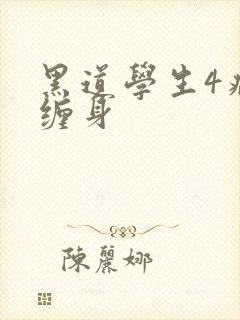 黑道學生4
缠身
陳麗娜